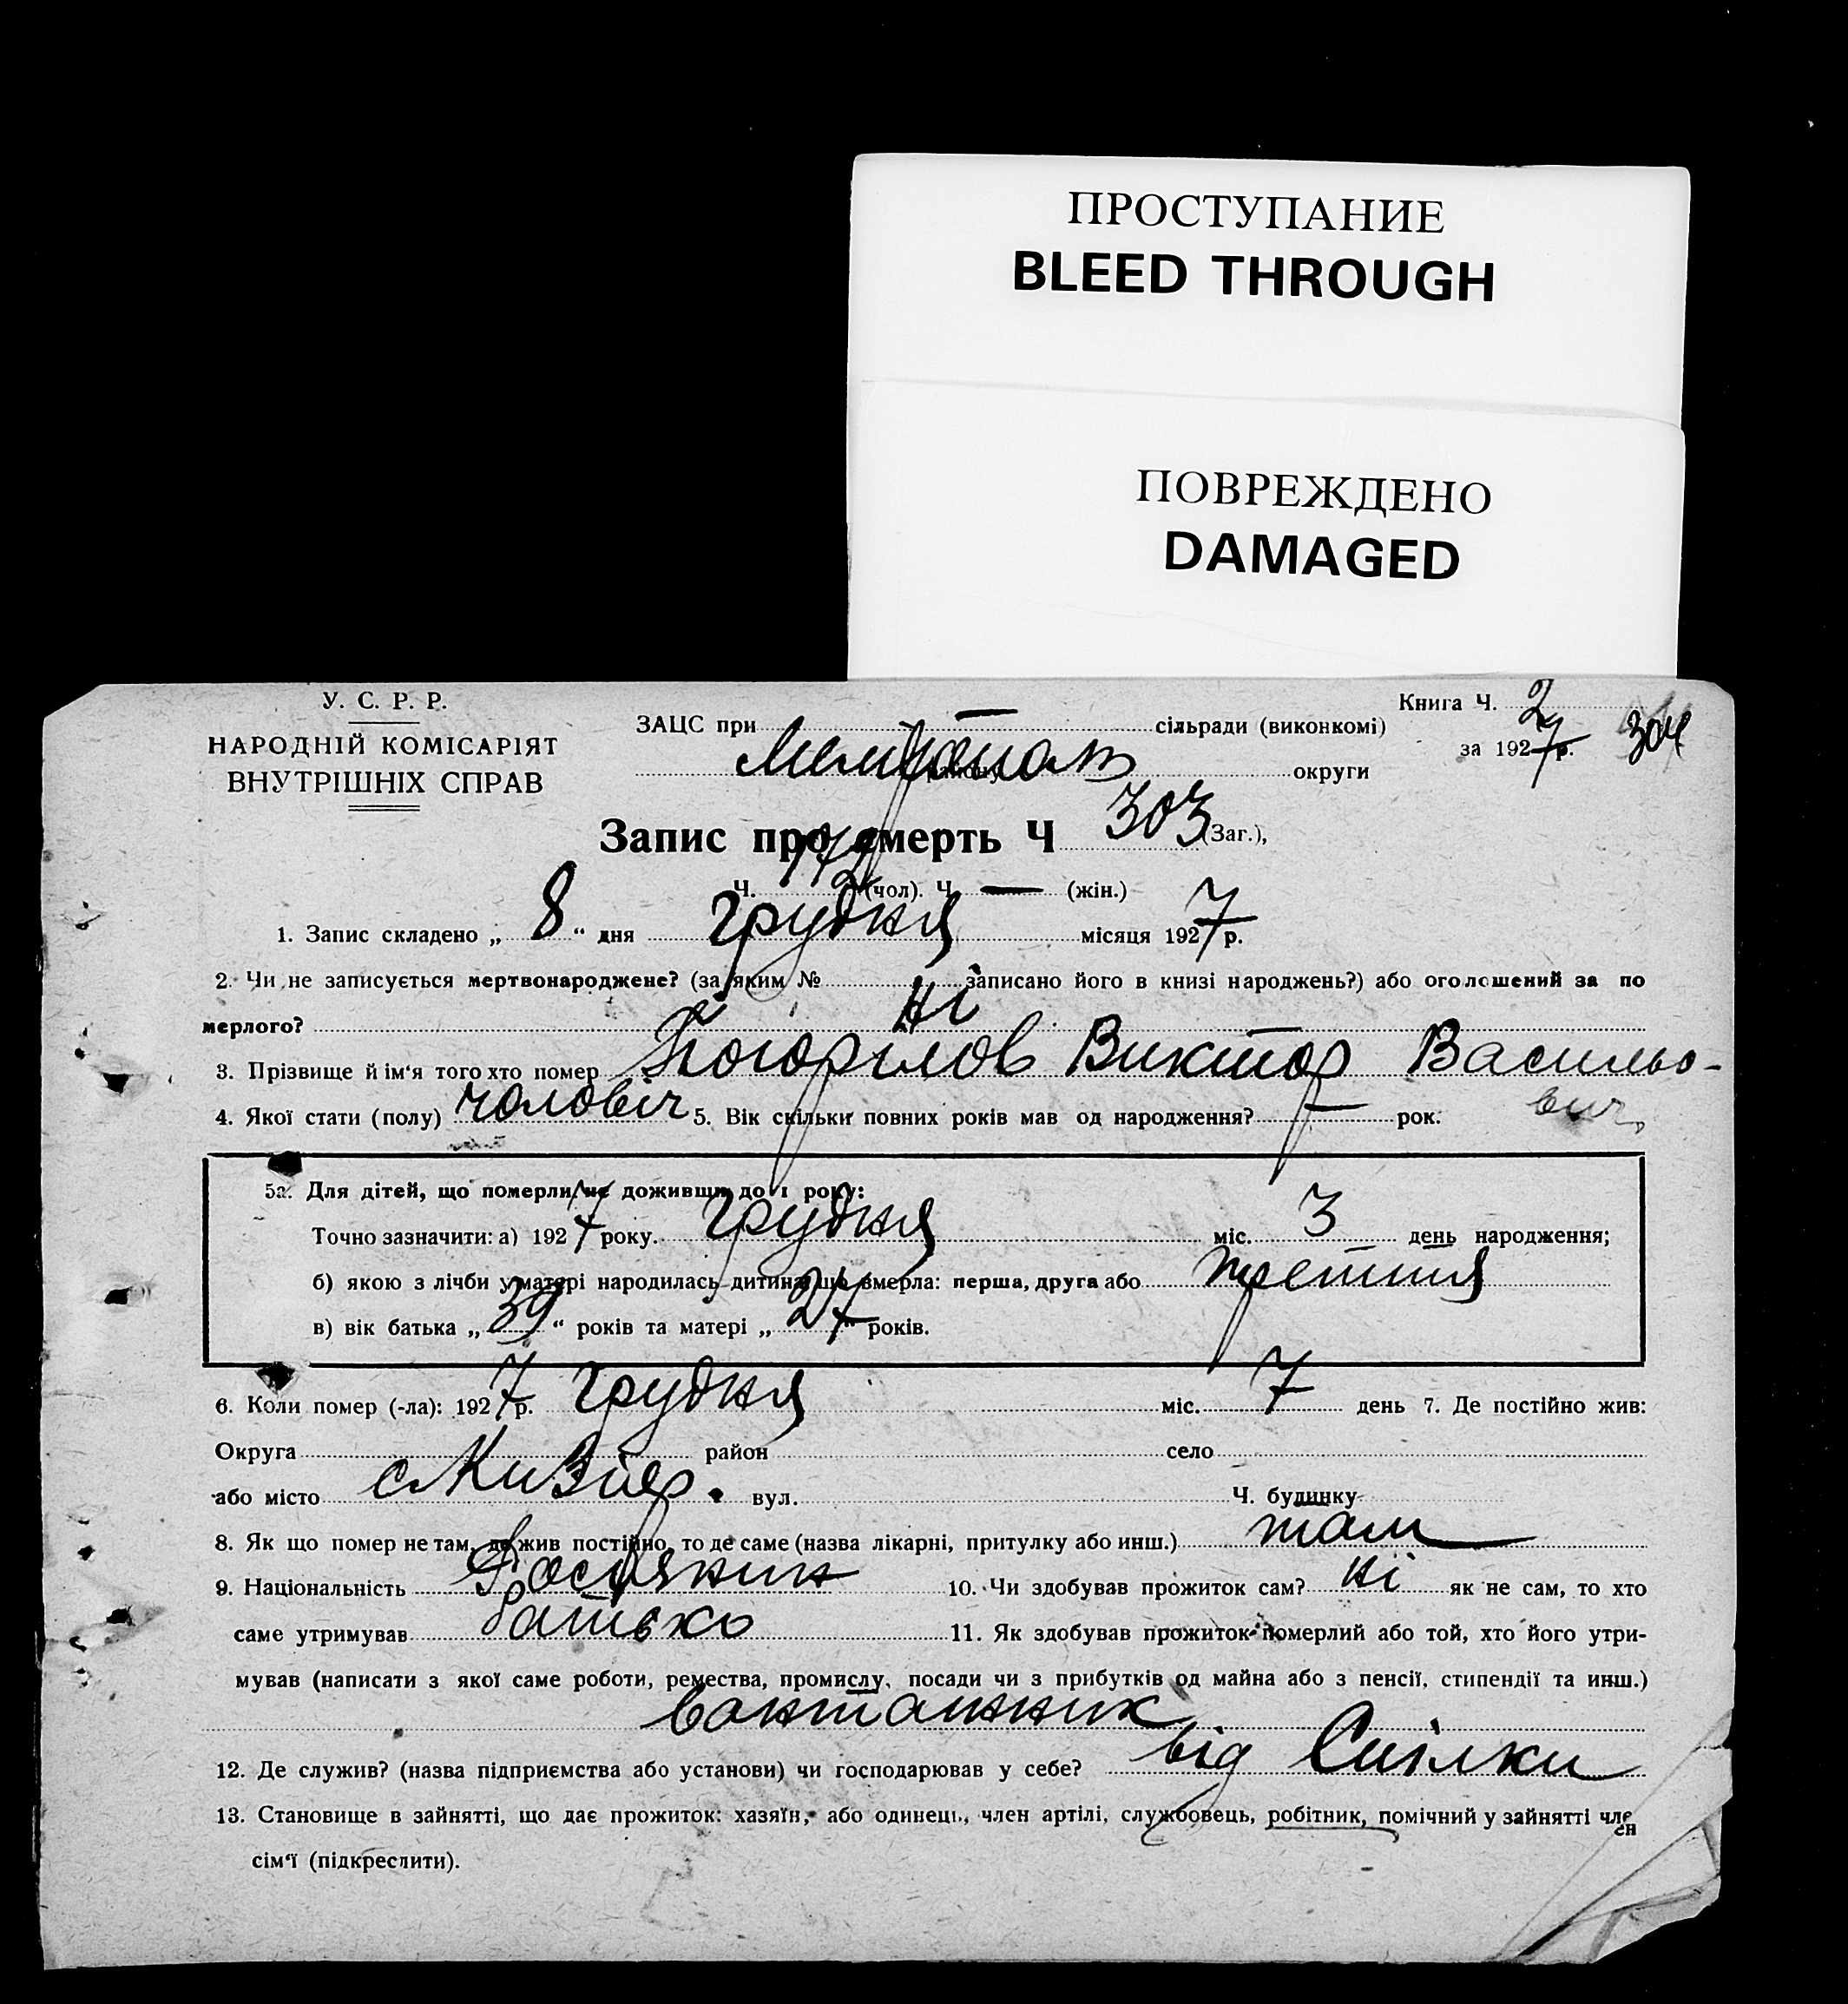 ПРОСТУПАНИЕ
BLEED THROUGH
ПОВРЕЖДЕНО
DAMAGED
У. С. Р. Р.
НАРОДНІЙ КОМІСАРІЯТ
ВНУТРІШНІХ СПРАВ
Книга Ч. 2
за 1927 р. 304
ЗАЦС при — сільради (виконкомі)
району округи
Запис про смерть Ч 303 (Заг.),
Ч. 172 (чол). Ч. — (жін.)
1. Запис складено „ 8 “ дня грудня місяця 1927 р.
2. Чи не записується мертвонароджене? (за яким № записано його в книзі народжень?) або оголошений за по
мерлого? ні
3. Прізвище й ім'я того хто помер Погорілов Виктор Васильо-
вич
4. Якої стати (полу) чоловіч 5. Вік скільки повних років мав од народження? — рок.
5а. Для дітей, що померли не доживши до 1 року:
Точно зазначити: а) 1927 року. грудня міс. 3 день народження;
б) якою з лічби у матері народилась дитина що вмерла: перша, друга або третття
в) вік батька „ 39 “ років та матері „ 27 “ років.
6. Коли помер (-ла): 1927 р. грудня міс. 7 день 7. Де постійно жив:
Округа район село
або місто с Кизіяр. вул. Ч. будинку
8. Як що помер не там, де жив постійно, то де саме (назва лікарні, притулку або инш.) там
9. Національність Росіянин 10. Чи здобував прожиток сам? ні як не сам, то хто
саме утримував батько 11. Як здобував прожиток померлий або той, хто його утри-
мував (написати з якої саме роботи, ремества, промислу, посади чи з прибутків од майна або з пенсії, стипендії та инш.)
вантажник
12. Де служив? (назва підприємства або установи) чи господарював у себе? від Спілки
13. Становище в зайнятті, що дає прожиток: хазяїн, або одинець, член артілі, службовець, робітник, помічний у зайнятті член
сім'ї (підкреслити).